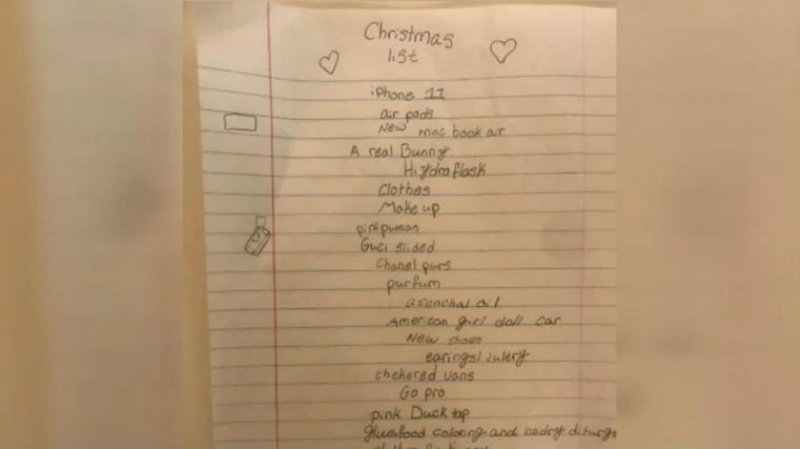 Christmas
list
iPhone 11
air pods
New mac book air
A real Bunny
Hydro flask
Clothes
Make up
pink pumas
Guci slides
Chanel purs
purfum
asenchal oil
American girl doll car
New shoes
earings/ julery
chekered vans
Go pro
pink Duck tap
glue food coloring and